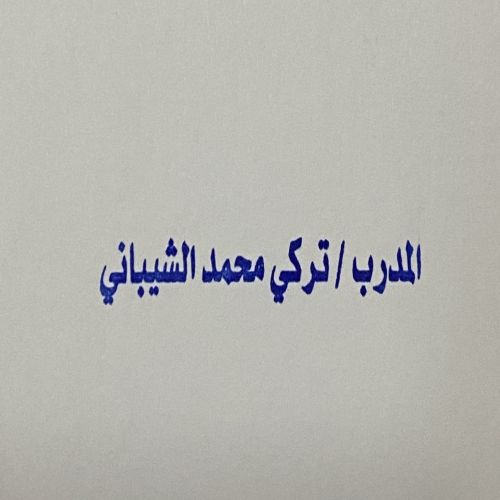 المدرب / تركي محمد الشيباني